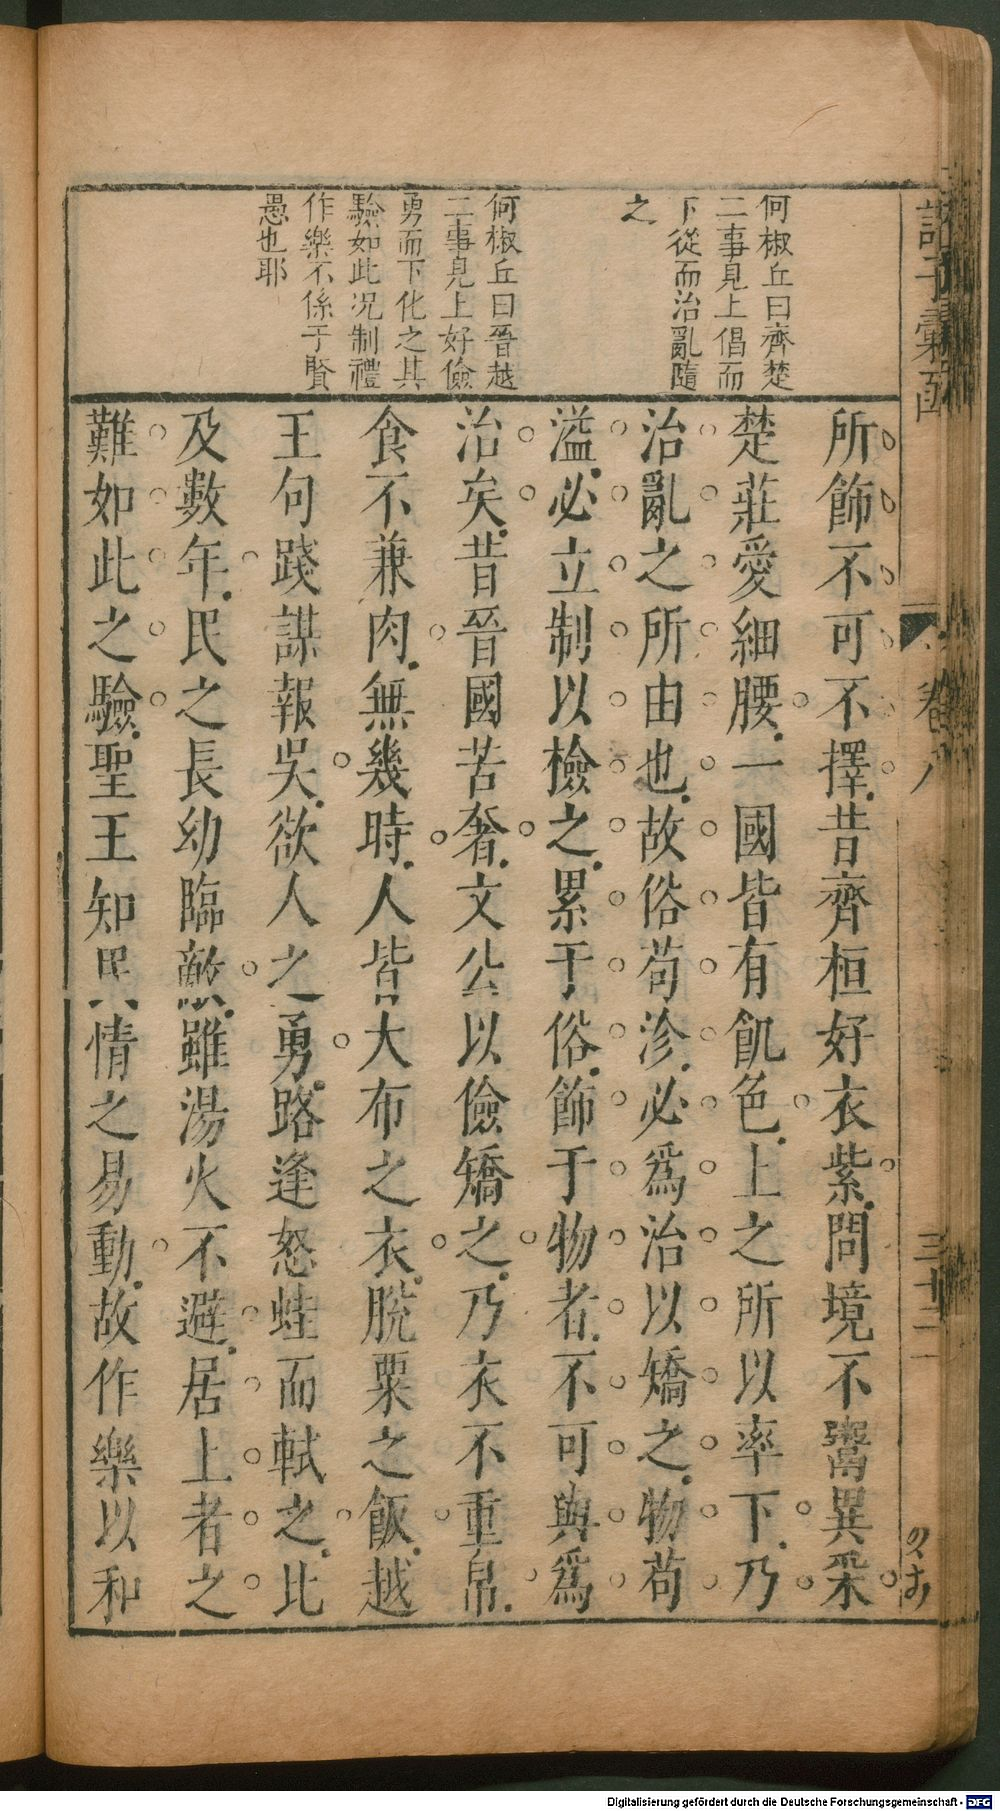 諸子彙函
卷八
三十二
何椒丘曰齊楚
二事見上倡而
下從而治亂隨
之
何椒丘曰晉越
二事見上好儉
勇而下化之其
驗如此况制禮
作樂不係于賢
愚也耶
所飾不可不擇昔齊桓好衣紫問境不鬻異采
楚莊愛細腰一國皆有飢色上之所以率下乃
治亂之所由也故俗苟沴必爲治以矯之物苟
溢必立制以檢之累于俗飾于物者不可與爲
治矣昔晉國苦奢文公以儉矯之乃衣不重帛
食不兼肉無幾時人皆大布之衣脫粟之飯越
王句踐謀報吳欲人之勇路逢怒蛙而軾之比
及數年民之長幼臨敵雖湯火不避居上者之
難如此之驗聖王知民情之易動故作樂以和
Digitalisierung gefördert durch die Deutsche Forschungsgemeinschaft - DFG